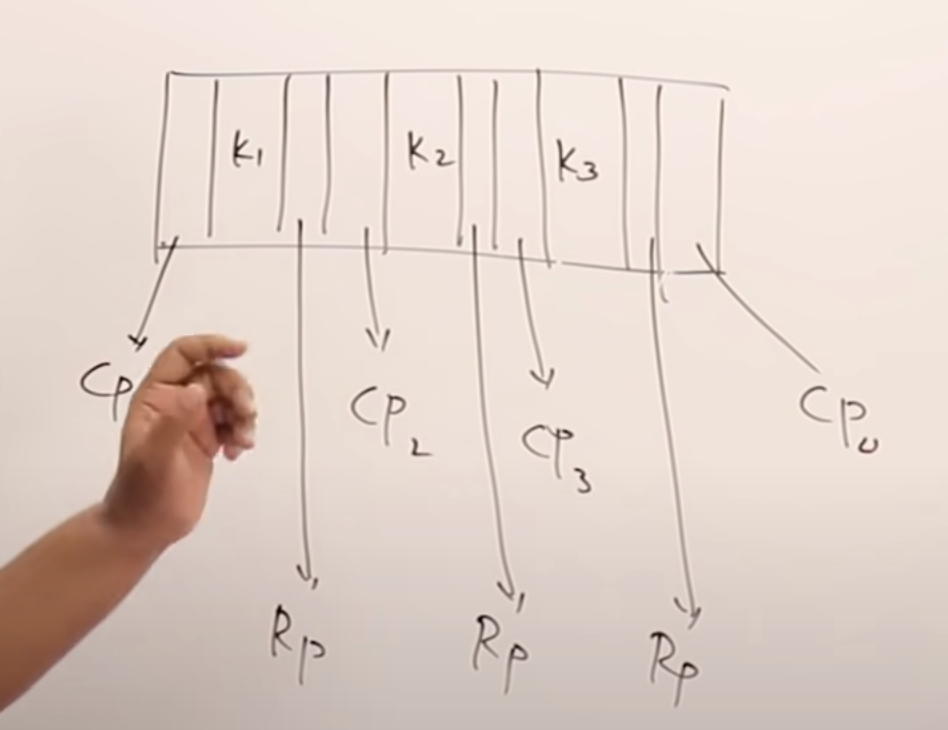 K1 K2 K3
Cp
CP2
CP3
CP0
Rp Rp Rp